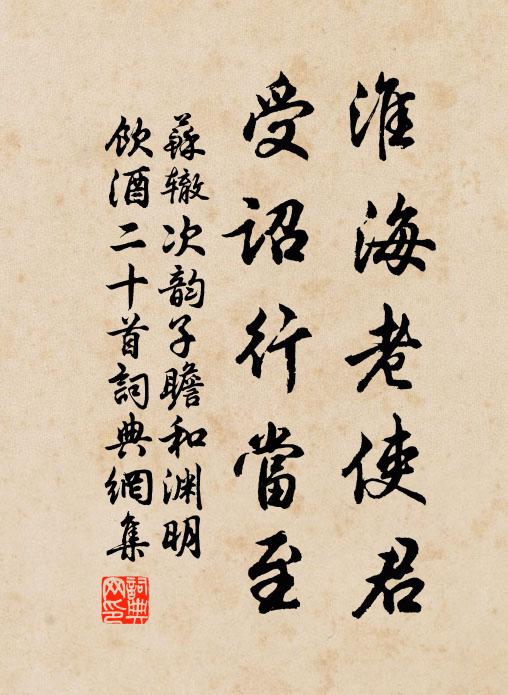 淮海老使君
受詔行當至
蘇辙次韵子瞻和渊明
飲酒二十首詞典網集
詞典
网印